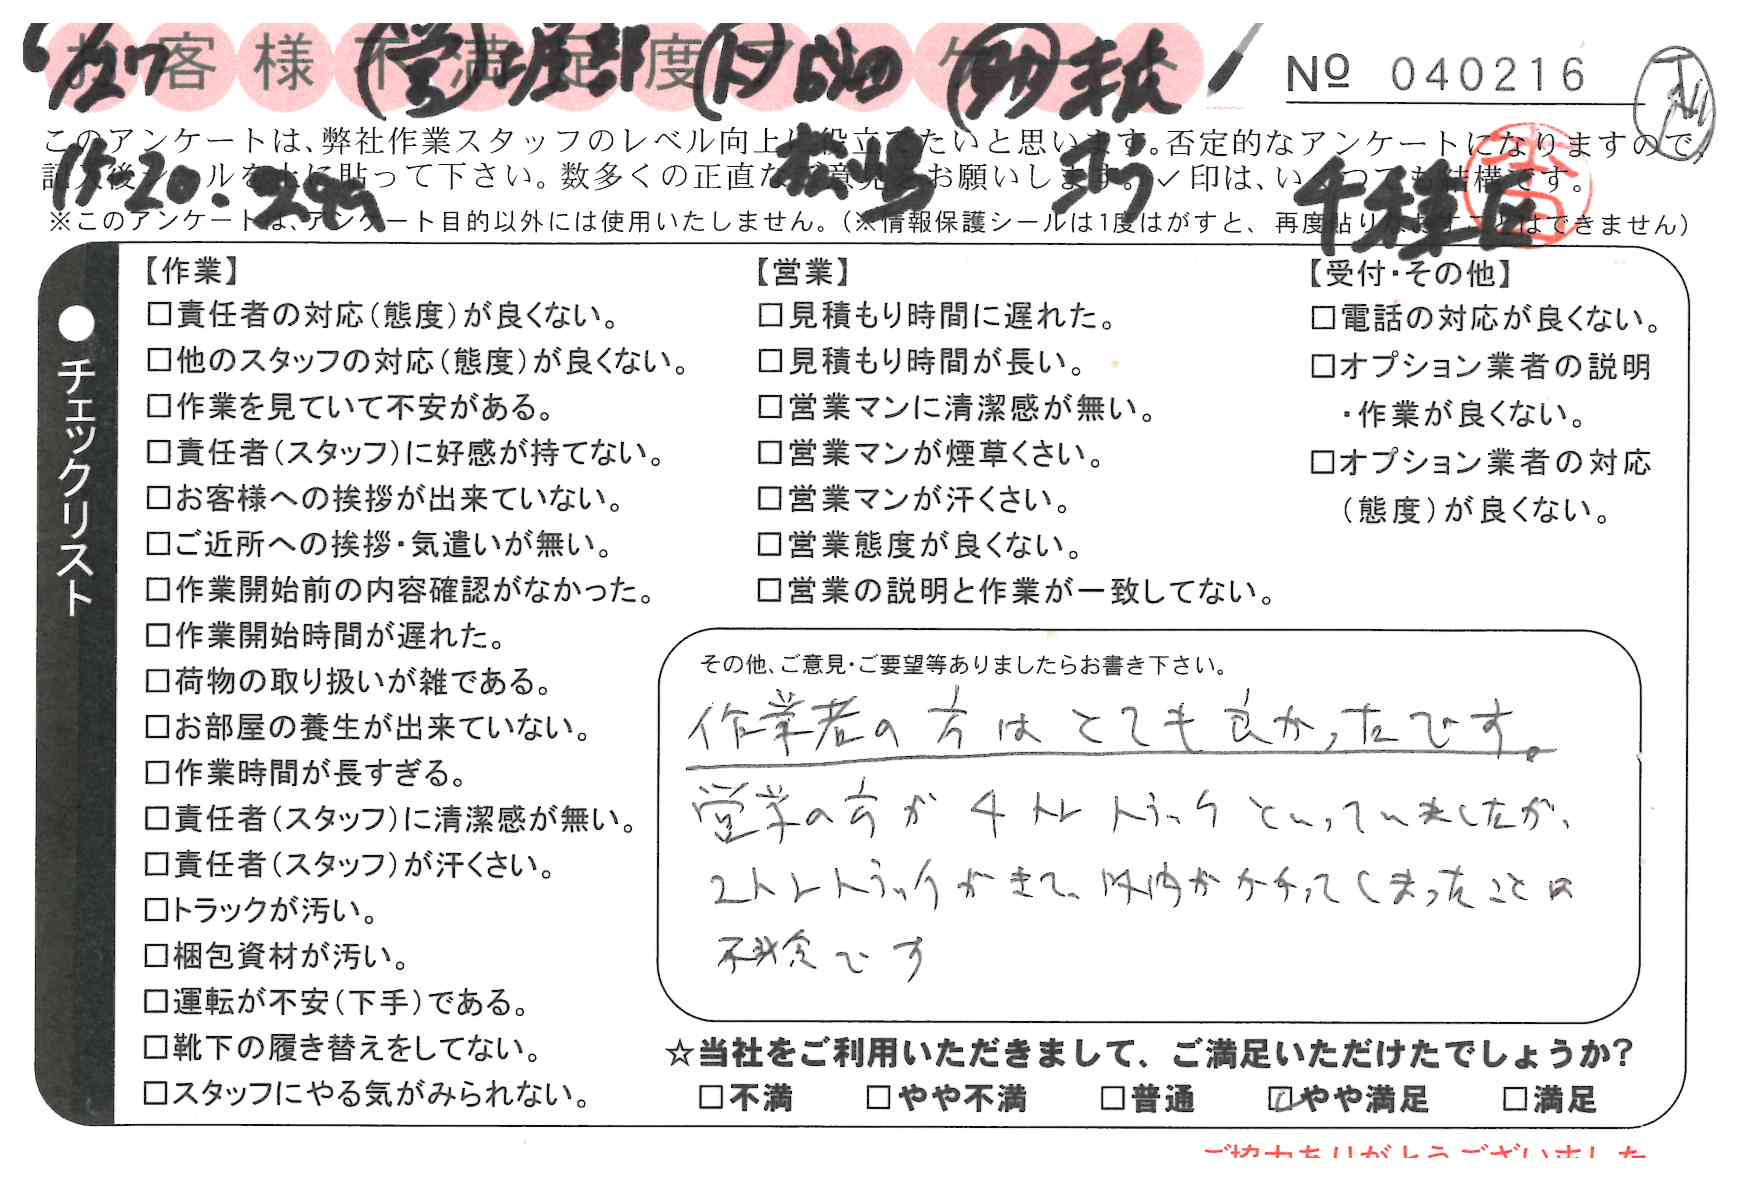 お客様不満足度アンケート
6/27 (営)堀部 (ト)
Nº 040216
このアンケートは、弊社作業スタッフのレベル向上に役立てたいと思います。否定的なアンケートになりますので、
記入後シールを上に貼って下さい。数多くの正直なご意見をお願いします。✓印は、いくつでも結構です。
千種区
※このアンケートは、アンケート目的以外には使用いたしません。(※情報保護シールは1度はがすと、再度貼りなおすことはできません)
●チェックリスト
【作業】
□責任者の対応(態度)が良くない。
□他のスタッフの対応(態度)が良くない。
□作業を見ていて不安がある。
□責任者(スタッフ)に好感が持てない。
□お客様への挨拶が出来ていない。
□ご近所への挨拶・気遣いが無い。
□作業開始前の内容確認がなかった。
□作業開始時間が遅れた。
□荷物の取り扱いが雑である。
□お部屋の養生が出来ていない。
□作業時間が長すぎる。
□責任者(スタッフ)に清潔感が無い。
□責任者(スタッフ)が汗くさい。
□トラックが汚い。
□梱包資材が汚い。
□運転が不安(下手)である。
□靴下の履き替えをしてない。
□スタッフにやる気がみられない。
【営業】
□見積もり時間に遅れた。
□見積もり時間が長い。
□営業マンに清潔感が無い。
□営業マンが煙草くさい。
□営業マンが汗くさい。
□営業態度が良くない。
□営業の説明と作業が一致してない。
【受付・その他】
□電話の対応が良くない。
□オプション業者の説明
・作業が良くない。
□オプション業者の対応
(態度)が良くない。
その他、ご意見・ご要望等ありましたらお書き下さい。
作業者の方はとても良かったです。
営業の方が4トントラックといっていましたが、
2トントラックがきて、以内かかってしまったことは
残念です
☆当社をご利用いただきまして、ご満足いただけたでしょうか?
□不満 □やや不満 □普通 ☑やや満足 □満足
ご協力ありがとうございました